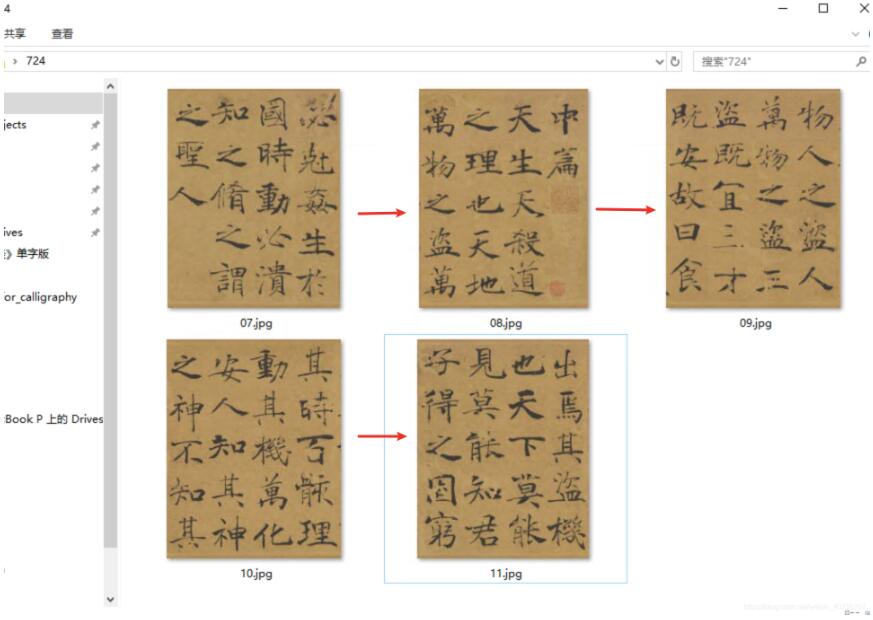 4
共享 查看
724
搜索"724"
jects
ives
》单字版
or_calligraphy
Book P 上的 Drives
尅姦生於
國時動必潰
知之脩之謂
之聖人
07.jpg
中篇
天生天殺道
之理也天地
萬物之盜萬
08.jpg
物人之盜人
萬物之盜三
盜既宜三才
既安故曰食
09.jpg
其時百骸理
動其機萬化
安人知其神
之神不知其
10.jpg
出焉其盜機
也天下莫能
見莫能知君
子得之固窮
11.jpg